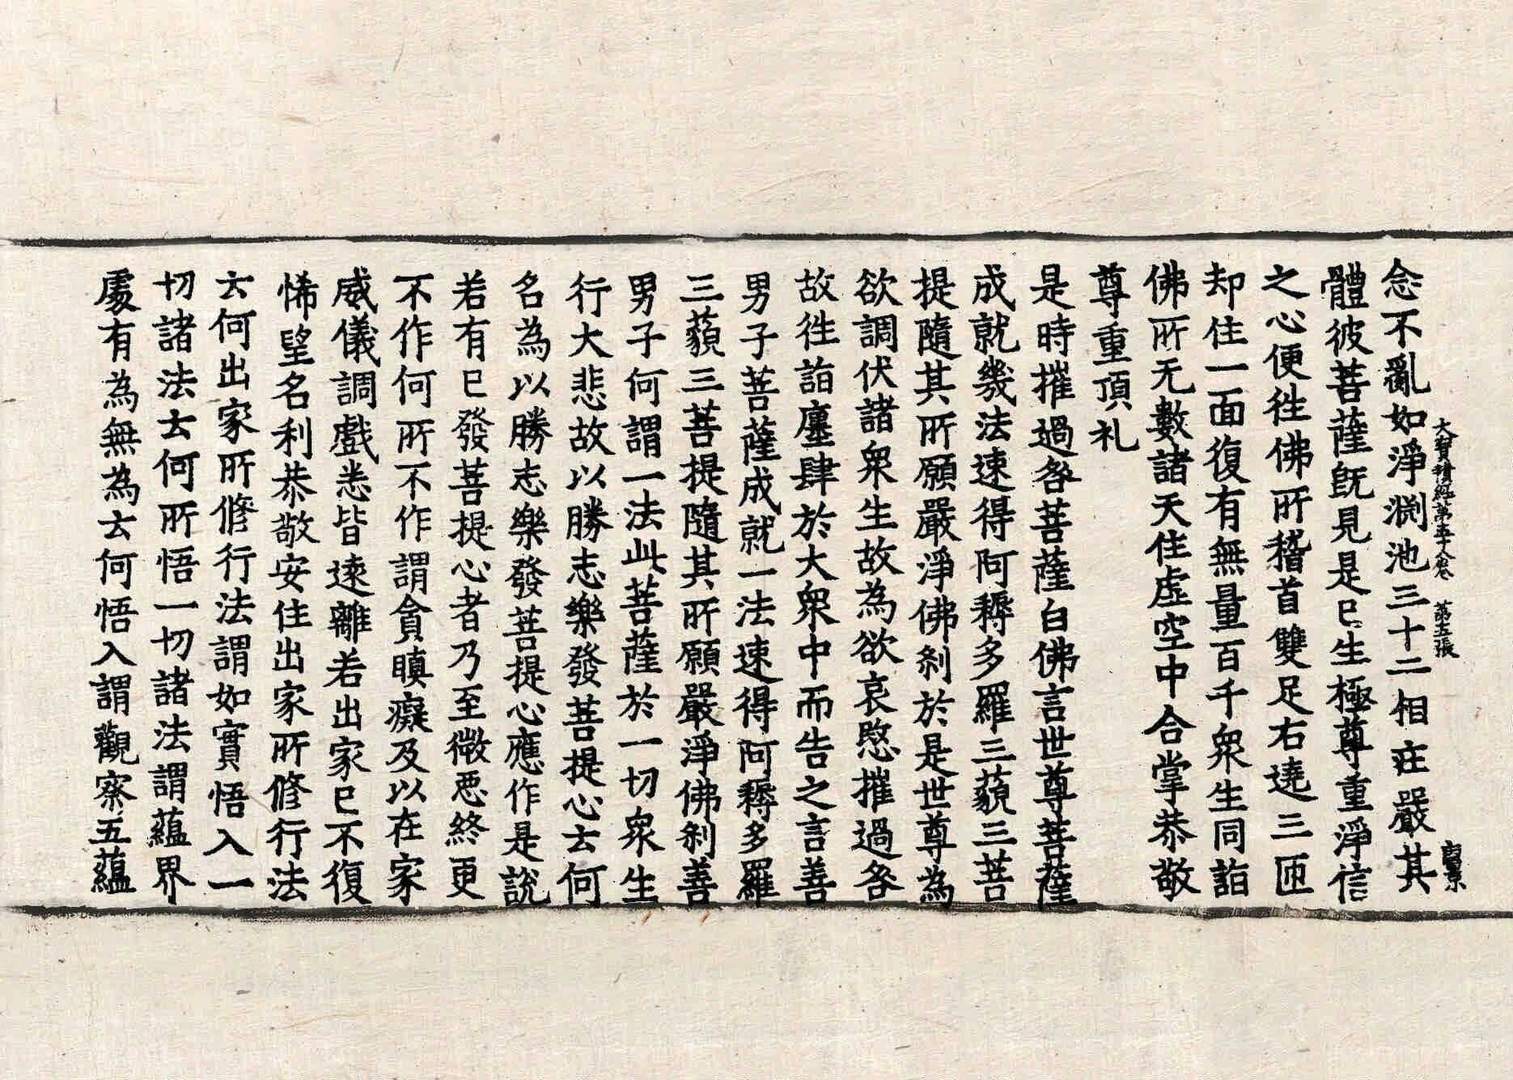 念不亂如淨渕池三十二相庄嚴其
大寶積經第五十八卷 第五張
體彼菩薩旣見是已生極尊重淨信
之心便徃佛所稽首雙足右遶三匝
却住一面復有無量百千衆生同詣
佛所无數諸天住虛空中合掌恭敬
尊重頂礼
是時摧過咎菩薩白佛言世尊菩薩
成就幾法速得阿耨多羅三藐三菩
提隨其所願嚴淨佛刹於是世尊為
欲調伏諸衆生故為欲哀愍摧過咎
故徃詣廛肆於大衆中而告之言善
男子菩薩成就一法速得阿耨多羅
三藐三菩提隨其所願嚴淨佛刹善
男子何謂一法此菩薩於一切衆生
行大悲故以勝志樂發菩提心云何
名為以勝志樂發菩提心應作是說
若有已發菩提心者乃至微惡終更
不作何所不作謂貪瞋癡及以在家
威儀調戲悉皆遠離若出家已不復
悕望名利恭敬安住出家所修行法
云何出家所修行法謂如實悟入一
切諸法云何所悟一切諸法謂蘊界
處有為無為云何悟入謂觀察五蘊